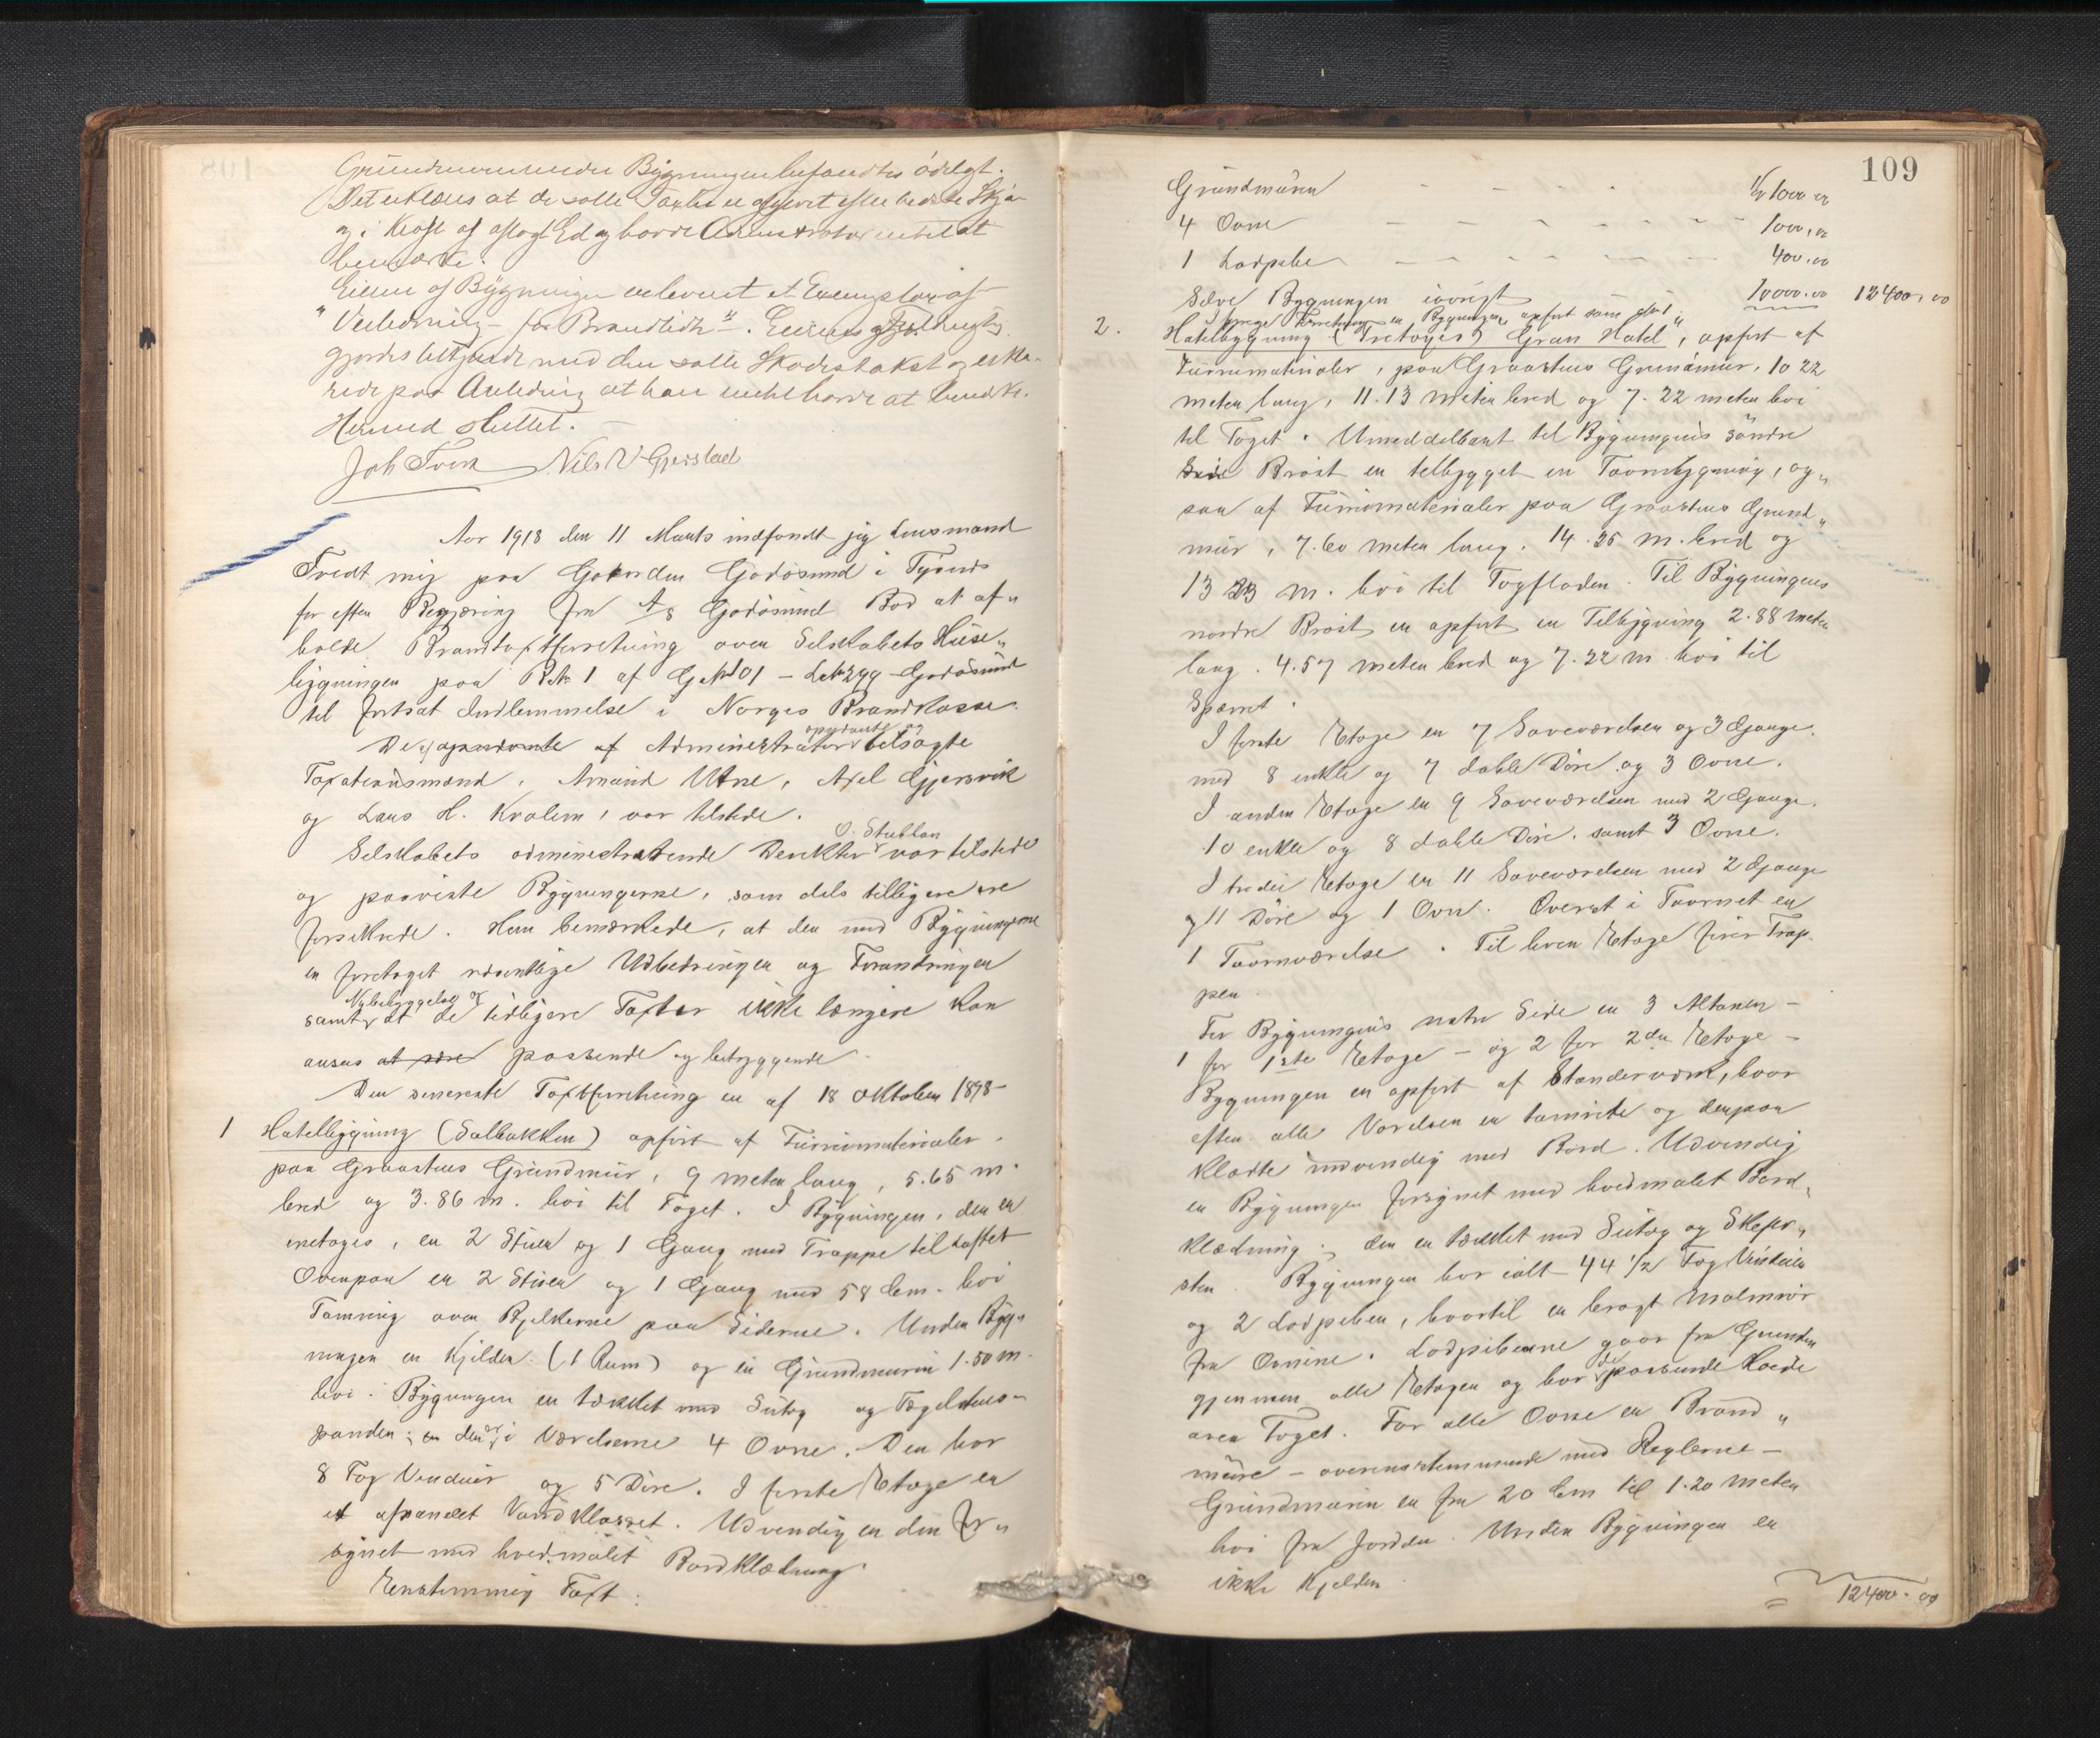 Grundmuren under Bygningen befandtes ödelagt.
Det erklæres at de satte Taxter er afgivet efter bedste Skjøn
og i Kraft af aflagt Ed og havde Administrator intet at
bemærke.
Eieren af Bygningen erleveret et Exemplar af
"Veiledning for Brandlidte".
gjordes bekjendt med den satte Skadestakst og erklæ-
rede paa Anledning at han intet havde at bemærke.
Hermed sluttet.
Joh Tvedt Nils N Gjerstad
Aar 1918 den 11 Marts indfandt jeg Lensmand
Tvedt mig paa Gaarden Godösund i Tysnes
for efter Begjæring fra A/S Godösund Bad at af„
holde Brandtaxtforretning over Selskabets Huse„
bygninger paa Br No 1 af G No 101 – L No 299 Godösund
til fortsat Indlemmelse i Norges Brandkasse.
De opnævnte af Administrator opnævnte og tilsagte
Taxationsmænd, Amund Utne, Axel Gjersvik
og Lars H. Kvalem, var tilstede.
Selskabets administrerende Direktör O. Stubban var tilstede
og paaviste Bygningerne, som dels tilligere ere
forsikrede. Han bemærkede, at der med Bygningerne
er foretaget væsentlige Udbedringer og Forandringer
samt Nybebyggelse og at de tidligere Taxter ikke længere kan
ansees at være passende og betryggende.
Den seneste Taxtforretning er af 18 Oktober 1898–
1 Hotelbygning (Solbakken) opfört af Furumaterialer,
paa Graastens Grundmur, 9 meter lang, 5.65 m.
bred og 3.86 m. höi til Taget. I Bygningen, den er
enetages, er 2 Stuer og 1 Gang med Trappe til Loftet
Ovenpaa er 2 Stuer og 1 Gang med 58 Cm. höi
Tømring over Bjelkerne paa Siderne. Under Byg„
ningen er Kjelder (1 Rum) og er Grundmuren 1.50 m.
höi. Bygningen er tækket med Sutag og Tegelstens„
pander; er der i Værelserne 4 Ovne. Den har
8 Fag Vinduer og 5 Döre. I förste Etage er
et afpanelet Vandklosset. Udvendig er den for„
synet med hvidmalet Bordklædning.
Enstemmig Taxt:
109
Grundmuren – – – – Kr 1000.00
4 Ovne – – – – – 1000.00
1 Ladpibe – – – – – 400.00
Selve Bygningen iövrigt 10000.00 12400.00
I forrige Forretning er Bygningen opfört som No 1„
2. Hotelbygning (Tretages) Gran Hotel", opfört af
Furumaterialer, paa Graastens Grundmur, 10 22
meter lang, 11.13 meter bred og 7.22 meter höi
til Taget. Umiddelbart til Bygningens söndre
Side Bröst er tilbygget en Taarnbygning, og„
saa af Furumaterialer paa Graastens Grund„
mur, 7.60 meter lang. 14.25 m. bred og
13 23 m. höi til Tagfladen. Til Bygningens
nordre Bröst er opfört en Tilbygning 2.88 meter
lang. 4.57 meter bred og 7.22 m. höi til
Spærret.
I förste Etage er 7 Soveværelser og 3 Gange.
med 8 enkle og 7 doble Döre og 3 Ovne.
I anden Etage er 9 Soveværelser med 2 Gange.
10 enkle og 8 doble Döre. samt 3 Ovne.
I tredie Etage er 11 Soveværelser med 2 Gange
og 11 Döre og 1 Ovn. Överst i Taarnet er
1 Taarnværelse. Til hver Etage förer Trap-
per.
For Bygningens vestre Side er 3 Altaner –
1 for 1ste Etage – og 2 for 2den Etage –
Bygningen er opfört af Standerværk, hvor
efter alle Værelser er tømrede og derpaa
klædte indvendig med Bord. Udvendig
er Bygningen forsynet med hvidmalet Bord„
klædning; den er tækket med Sutag og Skifer„
sten. Bygningen har ialt 44 1/2 Fag Vinduer
og 2 Ladpiber, hvortil er bragt Malmrör
fra Ovnene. Ladpiberne gaar fra Grunden
gjennem alle Etager og har de passende Höide
over Taget. For alle Ovne er Brand„
mure – overensstemmende med Reglerne –
Grundmuren er fra 20 Cm til 1.20 meter
höi fra Jorden. Under Bygningen er
ikke Kjelder.
12400.00